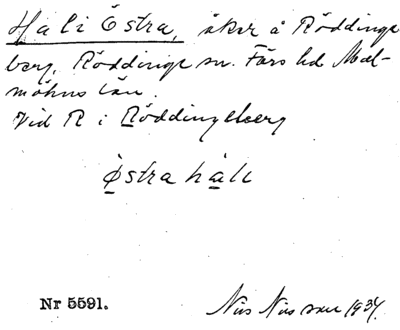 Hali Östra, åker å Röddinge
berg, Röddinge sn. Färs hd Mal-
möhus län.
Vid R i Röddingeberg
Östra hali
Nr 5591.
Nils Nilsson 1934.